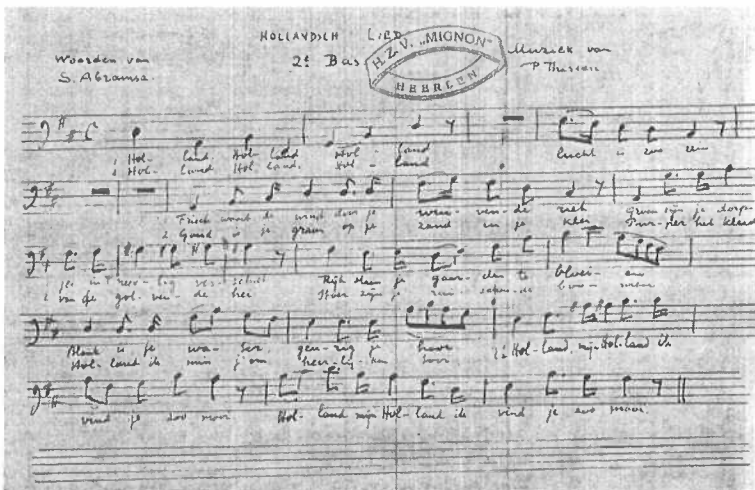 HOLLANDSCH LIED
Woorden van
S. Abramsz.
2e Bas
H.Z.V. „MIGNON"
HEERLEN
Muziek van
P. Thessen
1 Hol- land Hol- land Hol- land lucht is zoo
2 Hol- land Hol- land. Hol- land
1 Frisch waait de wind door je wui- ven- de riet Groen zijn je dorp-
2 Goud is je graan op je zand en je klei Pur- per het kleed
jes in 't ver- schiet Rijk staan je gaar- den te bloei- en
van de gol- ven- de hei Stoer zijn je boo- men
Blank is je wa- ter, geu- rig je hooi 1 2 Hol- land, mijn Hol- land ik
Hol- land ik min j' om heer- lijk- hen
vind je zoo mooi. Hol- land mijn Hol- land ik vind je zoo mooi.